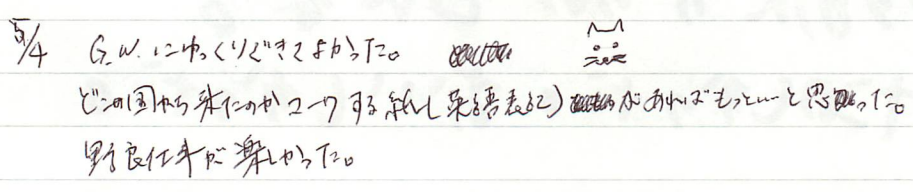 5/4 G.W.にゆっくりできてよかった。
どこの国から来たのか する紙(英語表記)があればもっといーと思った。
野良仕事が楽しかった。